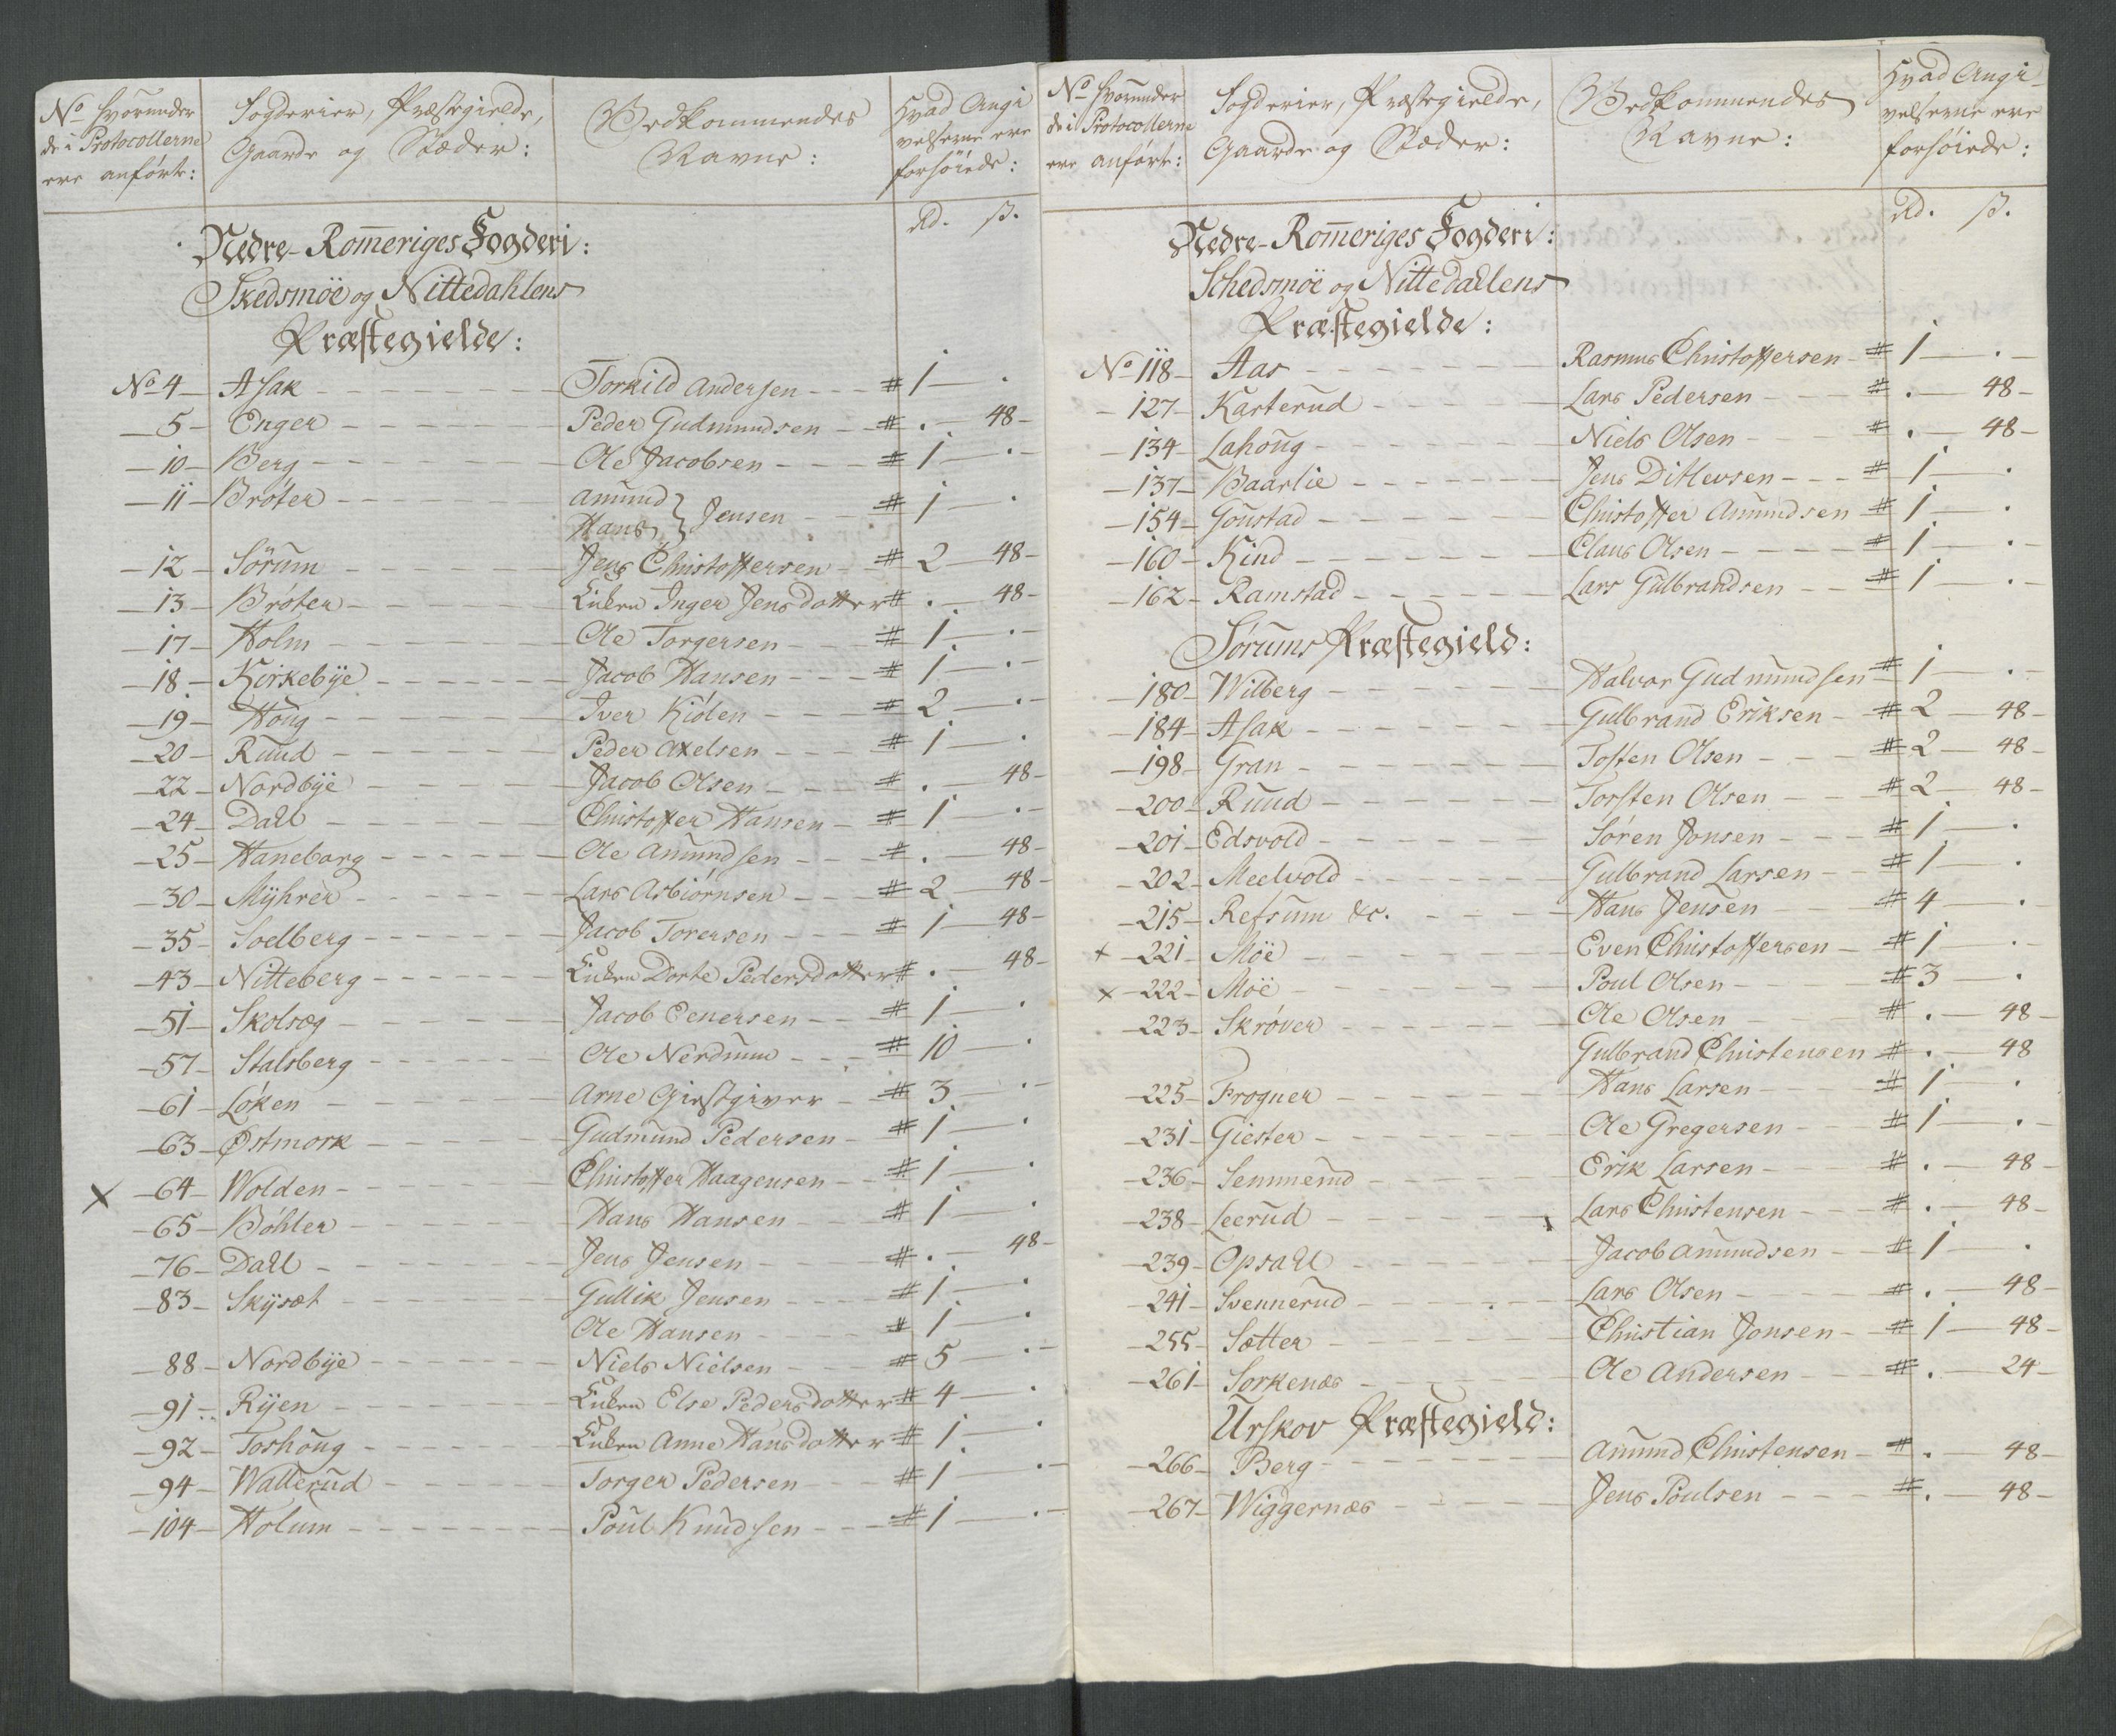 No hvorunder
de i Protocollerne
ere anførte:
Fogderier, Præstegielde,
Gaarde og Stæder:
Vedkommendes
Navne:
Hvad Angi-
velserne ere
forhøiede:
Rd. ß.
Nedre-Rom̄eriges Fogderi:
Skedsmöe og Nittedahlens
Præstegielde:
No 4 - Asak - Torkild Andersen - # 1 - .
- 5 - Enger - Peder Gudmundsen - # . - 48 -
- 10 - Berg - Ole Jacobsen - # 1 - . -
- 11 - Bröter - Amund
Hans } Jensen - # 1 - .
- 12 - Sörum - Jens Christoffersen - # 2 - 48 -
- 13 - Bröter - Enken Inger Jensdotter # . - 48 -
- 17 - Holm - Ole Torgersen - # 1 - . -
- 18 - Kirkebÿe - Jacob Hansen - # 1 - . -
- 19 - Houg - Iver Kiölen - # 2 - . -
- 20 - Ruud - Peder Axelsen - # 1 - .
- 22 - Nordbÿe - Jacob Olsen - # . - 48 -
- 24 - Dahl - Christoffer Hansen - # 1 - . -
- 25 - Haneborg - Ole Amundsen - # . - 48 -
- 30 - Mÿhrer - Lars Asbiörnsen - # 2 - 48 -
- 35 - Soelberg - Jacob Torersen - # 1 - 48 -
- 43 - Nitteberg - Enken Dorte Pedersdotter # . - 48 -
- 51 - Skolsæg - Jacob Eenersen - # 1 - .
- 57 - Stalsberg - Ole Nerdrum - # 10 - .
- 61 - Löken - Arne Giestgiver - # 3 - . -
- 63 - Østmork - Gudmund Pedersen - # 1 - .
x - 64 - Wolden - Christoffer Haagensen - # 1 - .
- 65 - Böhler - Hans Hansen - # 1 - .
- 76 - Dahl - Jens Jensen - # . - 48 -
- 83 - Skÿsæt - Gullik Jensen - # 1 - .
Ole Hansen - # 1 - .
- 88 - Nordbÿe - Niels Nielsen - # 5 - . -
- 91 - Rÿen - Enken Else Pedersdotter # 4 - .
- 92 - Toshoug - Enken Anne Hansdotter # 1 - .
- 94 - Wallerud - Torger Pedersen - # 1 - . -
- 104 - Holum - Poul Knudsen - # 1 - . -
No hvorunder
de i Protocollerne
ere anførte:
Fogderier, Præstegielde,
Gaarde og Stæder:
Vedkommendes
Navne:
Hvad Angi-
velserne ere
forhøiede:
Rd. ß.
Nedre-Rom̄eriges Fogderi:
Schedsmöe og Nittedallens
Præstegielde:
No 118 - Aas - Rasmus Christoffersen - # 1 - . -
- 127 - Karterud - Lars Pedersen - # . - 48 -
- 134 - Lahoug - Niels Olsen - # . - 48 -
- 137 - Baarlie - Jens Ditlevsen - # 1 - .
- 154 - Goustad - Christoffer Amundsen # 1 - .
- 160 - Kind - Claus Olsen - # 1 - . -
- 162 - Ramstad - Lars Gulbrandsen - # 1 - . -
Sörums Præstegield:
- 180 - Wilberg - Halvor Gudmundsen # 1 - . -
- 184 - Asak - Gulbrand Eriksen - # 2 - 48 -
- 198 - Gran - Tosten Olsen - # 2 - 48 -
- 200 - Ruud - Torsten Olsen - # 2 - 48 -
- 201 - Edsvold - Sören Jonsen - # 1 - .
- 202 - Meelvold - Gulbrand Larsen - # 1 - .
- 215 - Refsum &c. - Hans Jensen - # 4 - .
x - 221 - Möe - Even Christoffersen - # 1 - . -
x - 222 - Möe - Poul Olsen - # 3 - .
- 223 - Skröver - Ole Olsen - # . - 48 -
Gulbrand Christensen # . - 48
- 225 - Frogner - Hans Larsen - # 1 - .
- 231 - Giester - Ole Gregersen - # 1 - . -
- 236 - Semmerud - Erik Larsen - # . - 48 -
- 238 - Leerud - Lars Christensen - # . - 48 -
- 239 - Opsahl - Jacob Amundsen - # 1 - .
- 241 - Svennerud - Lars Olsen - # . - 48 -
- 255 - Sætter - Christian Jonsen - # 1 - 48 -
- 261 - Sorkenæs - Ole Andersen - # . - 24 -
Urskov Præstegield:
- 266 - Berg - Amund Christensen - # . - 48 -
- 267 - Wiggernæs - Jens Poulsen - # . - 48 -